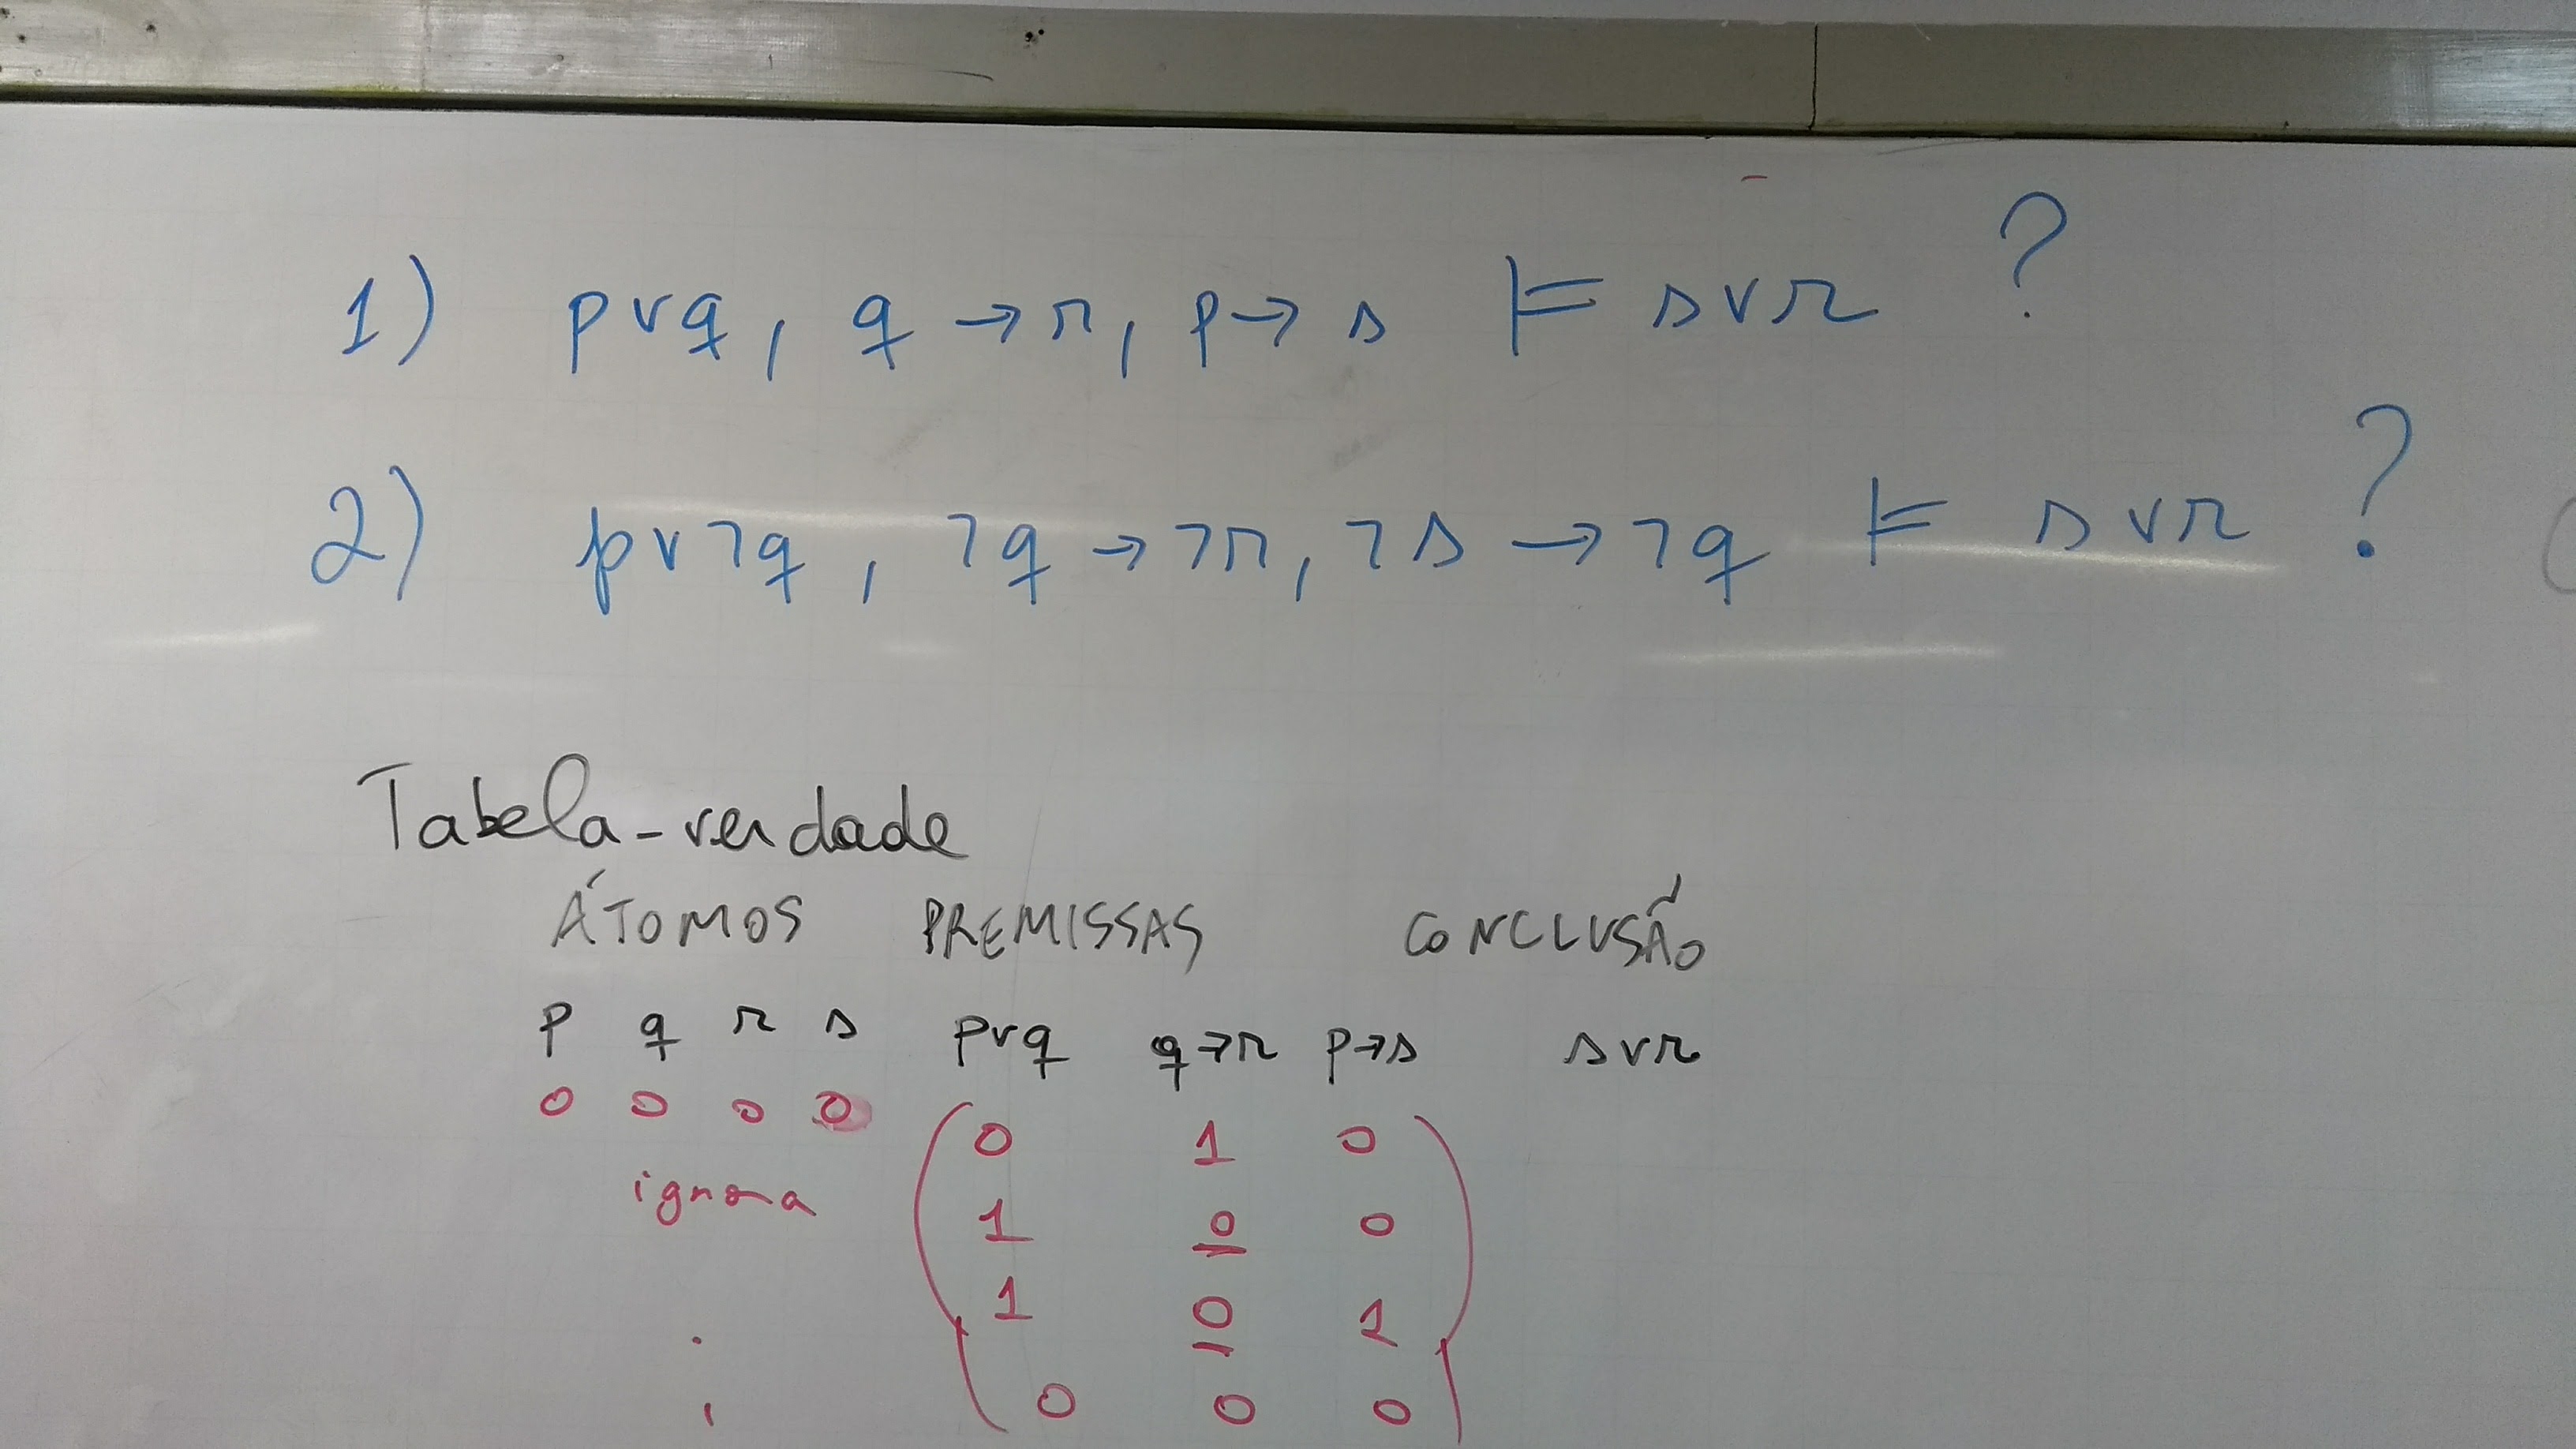 1) p∨q, q→r, p→s ⊨ s∨r ?
2) p∨¬q, ¬q→¬r, ¬s→¬q ⊨ s∨r ?
Tabela-verdade
ÁTOMOS PREMISSAS CONCLUSÃO
p q r s p∨q q→r p→s s∨r
0 0 0 0 0 1 0
ignora 1 0 0
1 0 1
0 0 0